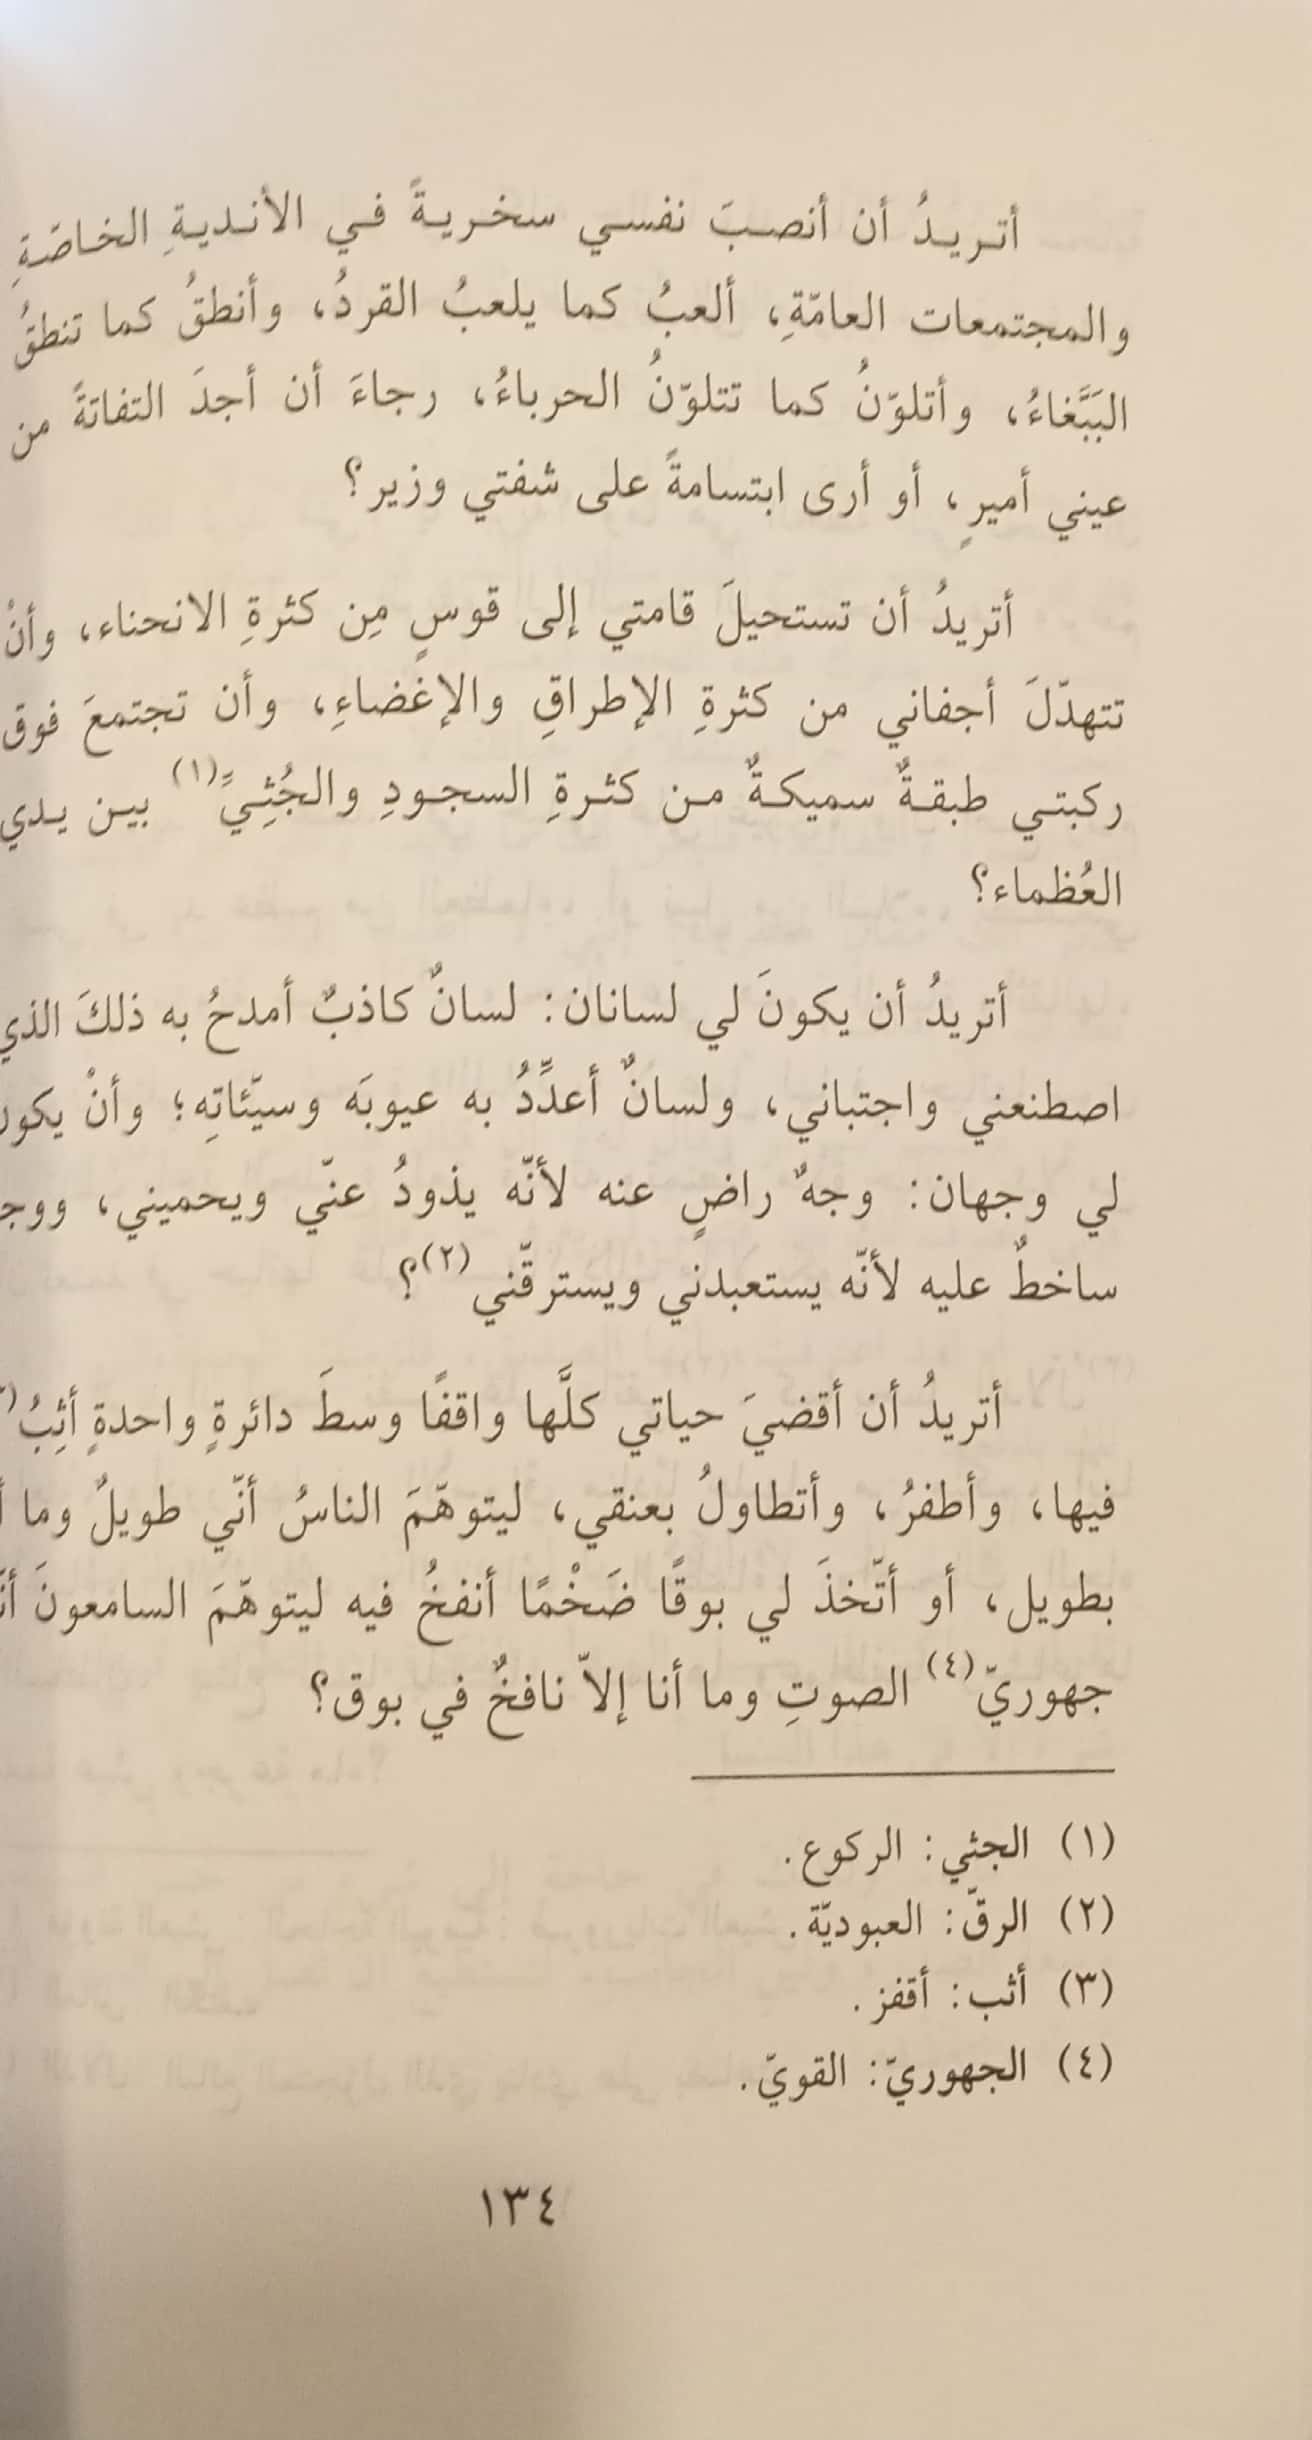 أتريدُ أن أنصبَ نفسي سخريةً في الأنديةِ الخاصّةِ
والمجتمعات العامّةِ، ألعبُ كما يلعبُ القردُ، وأنطقُ كما تنطقُ
البَبَّغاءُ، وأتلوّنُ كما تتلوّنُ الحرباءُ، رجاءَ أن أجدَ التفاتةً من
عيني أميرٍ، أو أرى ابتسامةً على شفتي وزير؟
أتريدُ أن تستحيلَ قامتي إلى قوسٍ مِن كثرةِ الانحناء، وأنْ
تتهدّلَ أجفاني من كثرةِ الإطراقِ والإغضاءِ، وأن تجتمعَ فوق
ركبتي طبقةٌ سميكةٌ من كثرةِ السجودِ والجُثِيًّ(١) بين يدي
العُظماء؟
أتريدُ أن يكونَ لي لسانان: لسانٌ كاذبٌ أمدحُ به ذلكَ الذي
اصطنعني واجتباني، ولسانٌ أعدِّدُ به عيوبَه وسيّئاتِه؛ وأنْ
لي وجهان: وجهٌ راضٍ عنه لأنّه يذودُ عنّي ويحميني،
ساخطٌ عليه لأنّه يستعبدني ويسترقّني(٢)؟
أتريدُ أن أقضيَ حياتي كلَّها واقفًا وسطَ دائرةٍ واحدةٍ أثِبُ
فيها، وأطفرُ، وأتطاولُ بعنقي، ليتوهّمَ الناسُ أنّي طويلٌ وما
بطويل، أو أتّخذَ لي بوقًا ضَخْمًا أنفخُ فيه ليتوهّمَ السامعونَ
جهوريّ(٤) الصوتِ وما أنا إلاّ نافخٌ في بوق؟
(١) الجثي: الركوع.
(٢) الرقّ: العبوديّة.
(٣) أثب: أقفز.
(٤) الجهوريّ: القويّ.
١٣٤